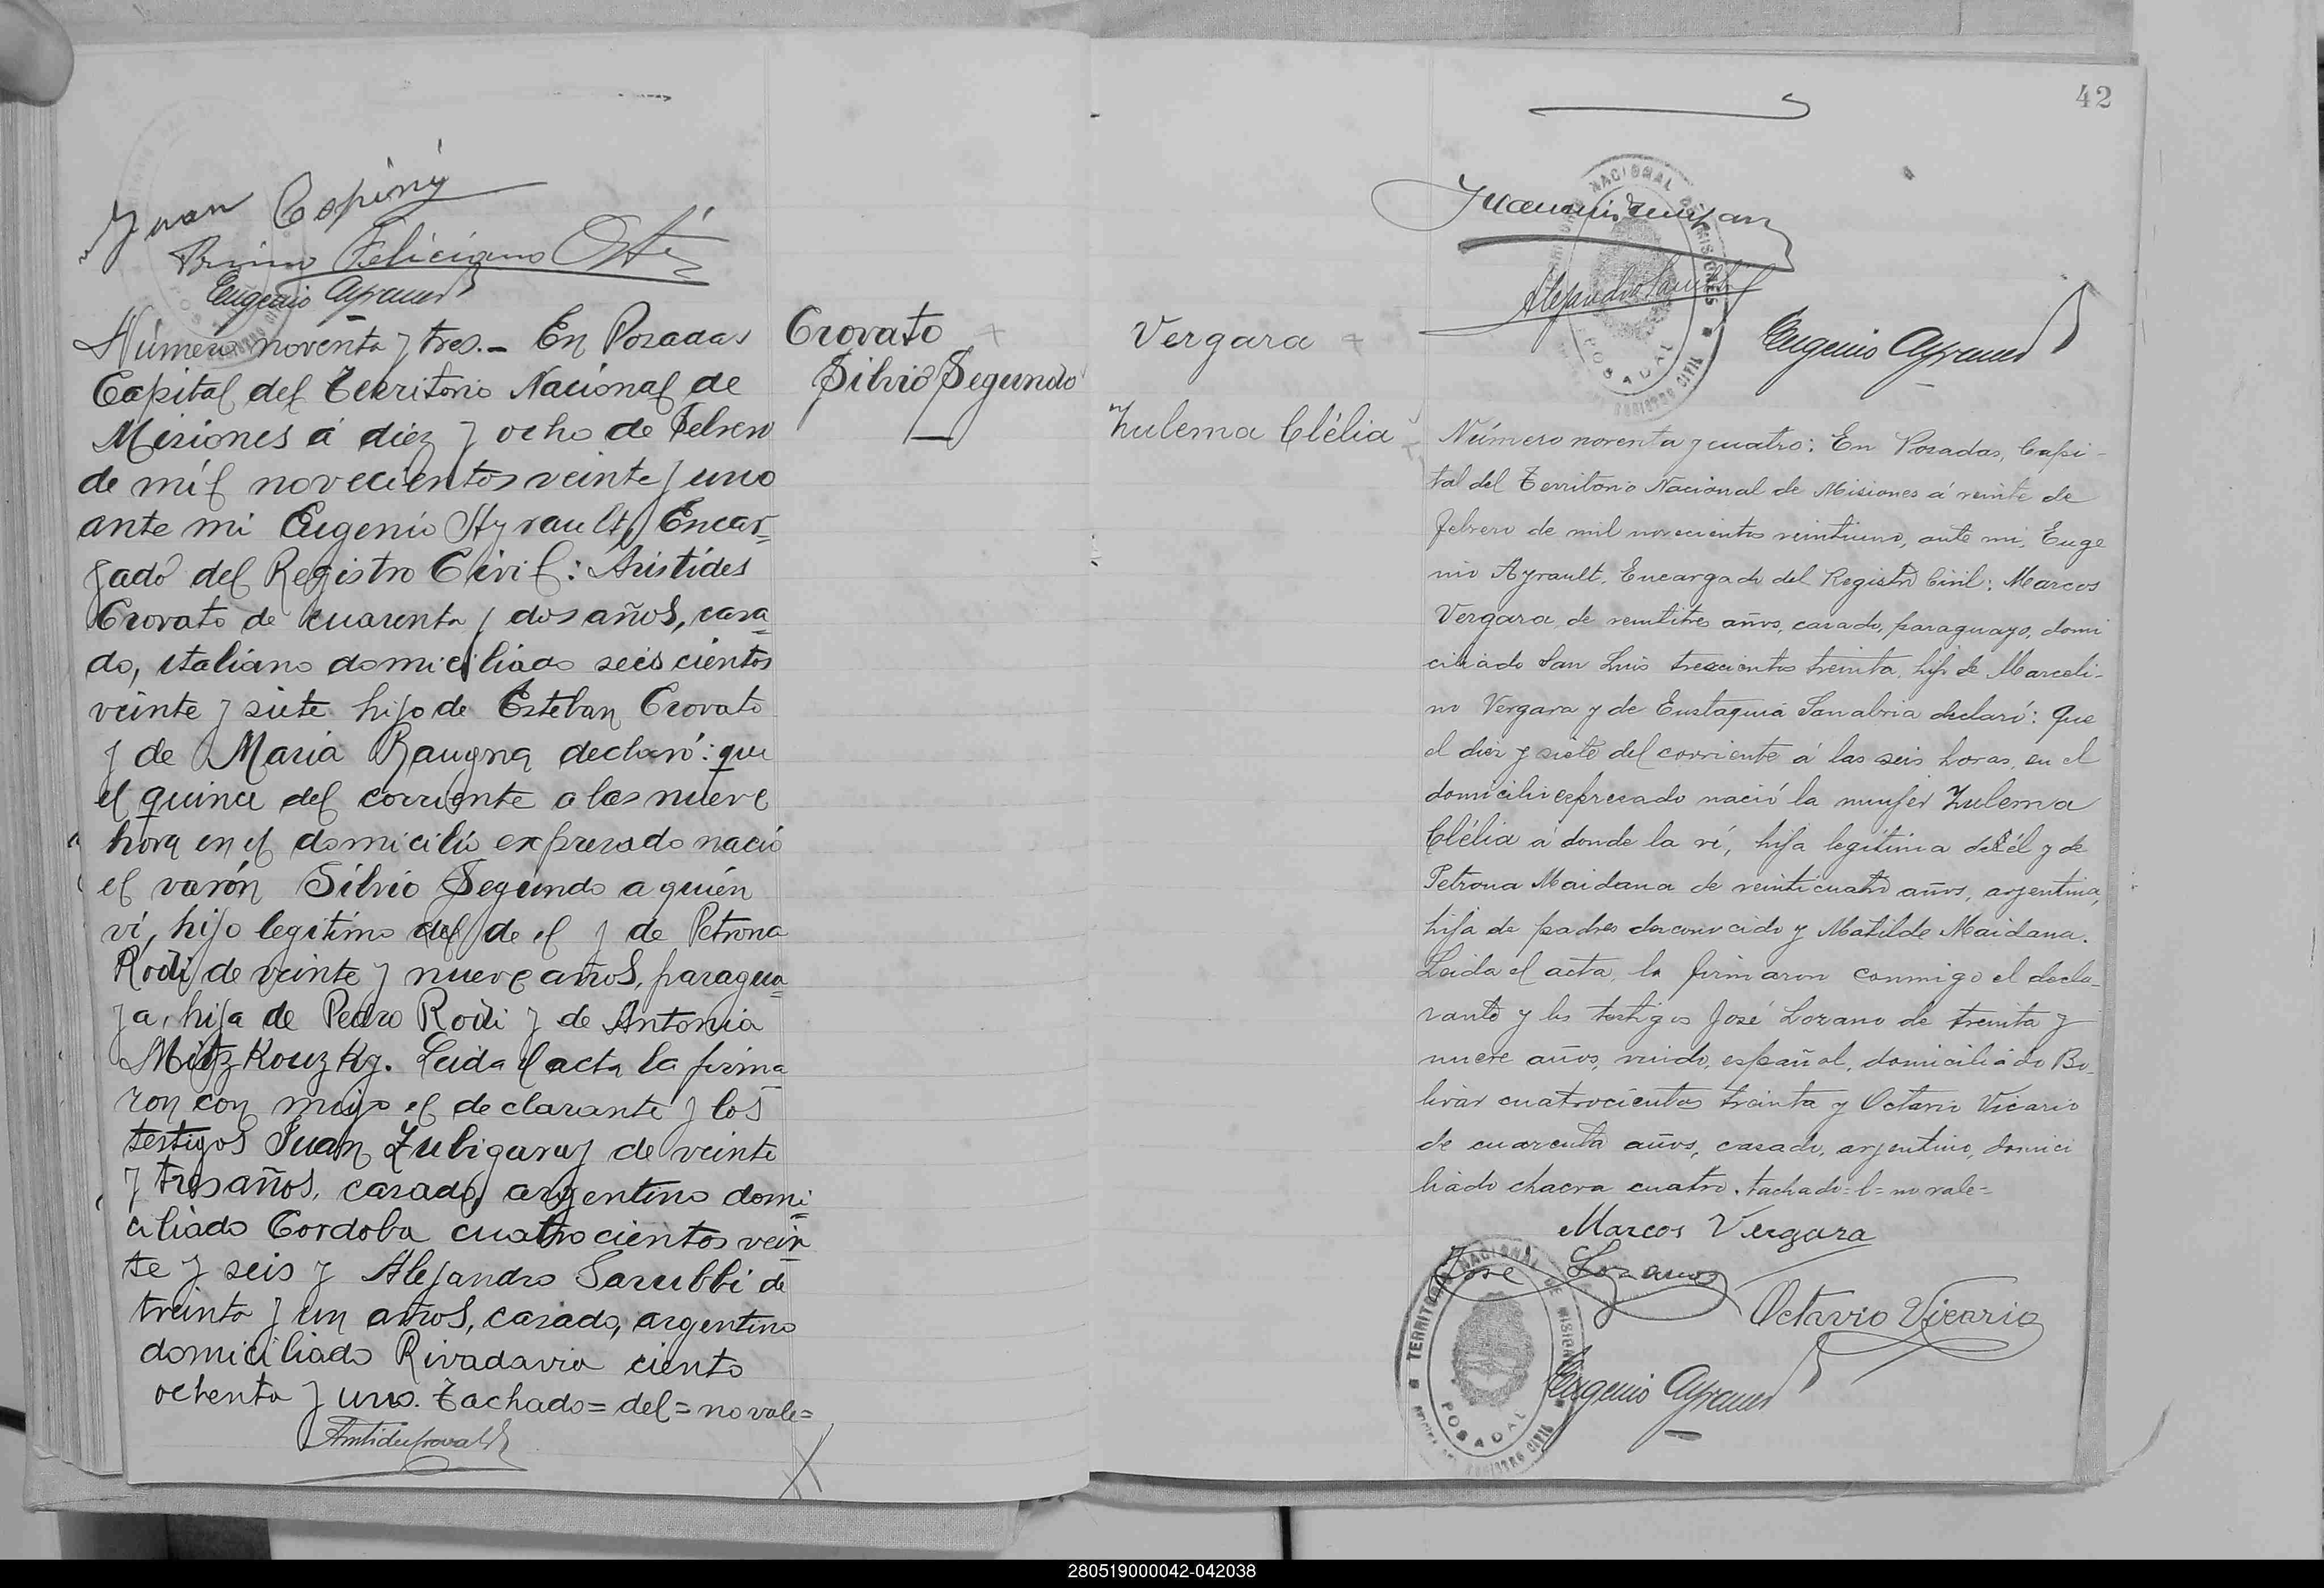 Juan Espiny
Primo Feliciano
Eugenio Ayrault
Número noventa y tres.- En Posadas
Capital del Territorio Nacional de
Misiones á diez y ocho de Febrero
de mil novecientos veinte y uno
ante mi Eugenio Ayrault, Encar=
gado del Registro Civil: Aristides
Crovato de cuarenta y dos años, casa=
do, italiano domiciliado seis cientos
veinte y siete hijo de Esteban Crovato
y de Maria Raugna declaró: que
el quince del corriente a las nueve
hora en el domicilio expresado nació
el varón Silvio Segundo a quién
ví, hijo legitimo del de el y de Petrona
Rodi de veinte y nueve años, paragua=
ya, hija de Pedro Rodi y de Antonia
Mitzkouzky. Leida el acta la firma=
ron con migo el declarante y los
testigos Juan Zubigaray de veinte
y tres años, casado, argentino domi=
ciliado Cordoba cuatrocientos vein
te y seis y Alejandro Sarubbi de
treinta y un años, casado, argentino
domiciliado Rivadavia ciento
ochenta y uno. Tachado=del=no vale=
Crovato
Silvio Segundo
42
NACIONAL DE MISIONES
POSADAS
REGISTRO CIVIL
Alejandro Sarubbi
Eugenio Ayrault
Vergara
Zulema Clélia
Número noventa y cuatro: En Posadas, Capi-
tal del Territorio Nacional de Misiones á veinte de
febrero de mil novecientos veintiuno, ante mi, Euge
nio Ayrault, Encargado del Registro Civil: Marcos
Vergara, de veintitres años, casado, paraguayo, domi
ciliado San Luis trescientos treinta, hijo de Marceli-
no Vergara y de Eustaquia Sanabria declaró: Que
el diez y siete del corriente á las seis horas, en el
domicilio expresado nació la mujer Zulema
Clélia á donde la ví, hija legítima del él y de
Petrona Maidana de veinticuatro años, argentina,
hija de padres desconocido y Matilde Maidana.
Leida el acta, la firmaron conmigo el decla-
rante y los testigos José Lozano de treinta y
nueve años, viudo, español, domiciliado Bo-
livar cuatrocientos treinta y Octavio Vicario
de cuarenta años, casado, argentino, domici
liado chacra cuatro. tachado=l=no vale=
Marcos Vergara
José Lozano
Octavio Vicario
Eugenio Ayrault
TERRITORIO NACIONAL DE MISIONES
POSADAS
REGISTRO CIVIL
280519000042-042038